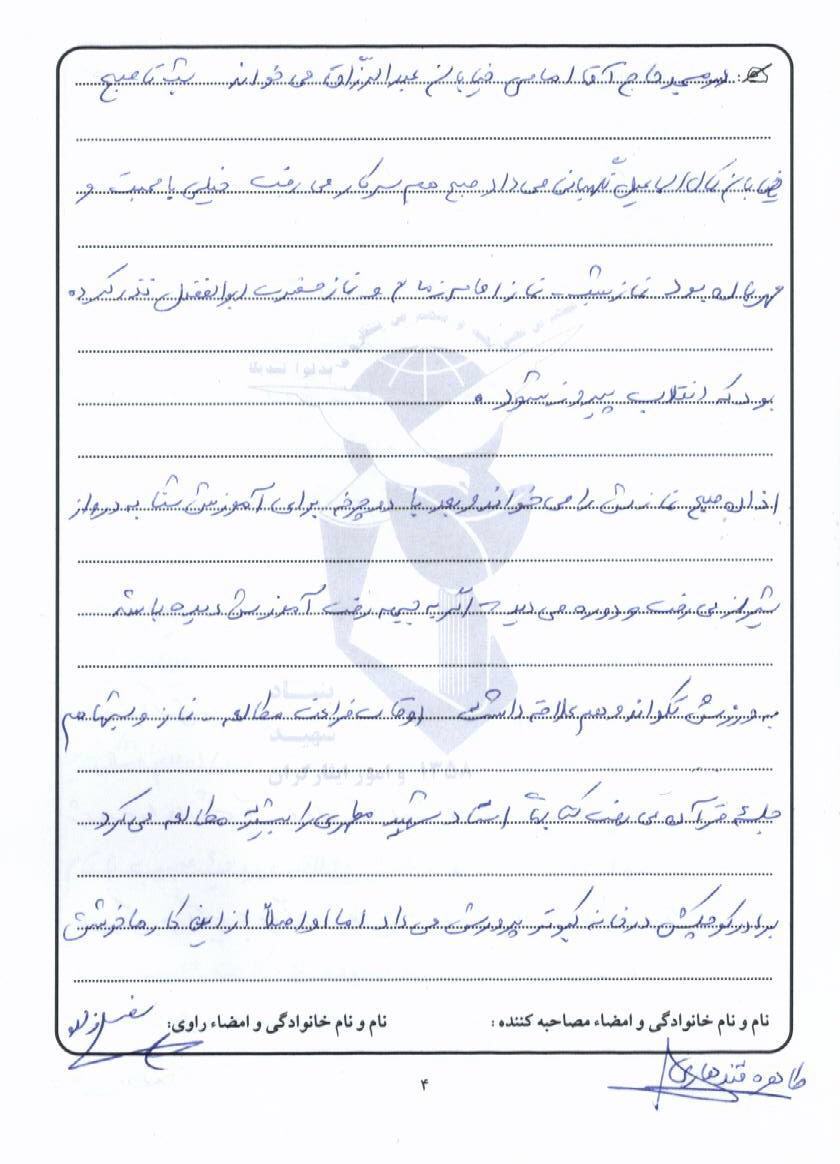 در مسجد حاج آقا امامی خیابان عبدالرزاق می خواند شب تا صبح
خیابان کمال اسماعیل نگهبانی می داد صبح هم سر کار می رفت خیلی با محبت و
مهربان بود نماز شب نماز امام زمان و نماز حضرت ابوالفضل نذر کرده
بود که انقلاب پیروز شود.
اذان صبح نمازش را می خواند و بعد با دوچرخه برای آموزش شنا به درواز
شیراز می رفت و دوره می دید اگر به جبهه رفت آموزش دیده باشد
به ورزش تکواندو هم علاقه داشت اوقات فراغت مطالعه نماز و شبها هم
جلسه قرآن می رفت کتابهای استاد شهید مطهری را بیشتر مطالعه می کرد
برادر کوچکش در خانه کبوتر پرورش می داد اما او اصلاً از این کارها خوشش
بنیاد
شهید
و امور ایثارگران
۱۳۵۸
نام و نام خانوادگی و امضاء مصاحبه کننده : نام و نام خانوادگی و امضاء راوی:
طاهره قندهاری
۴